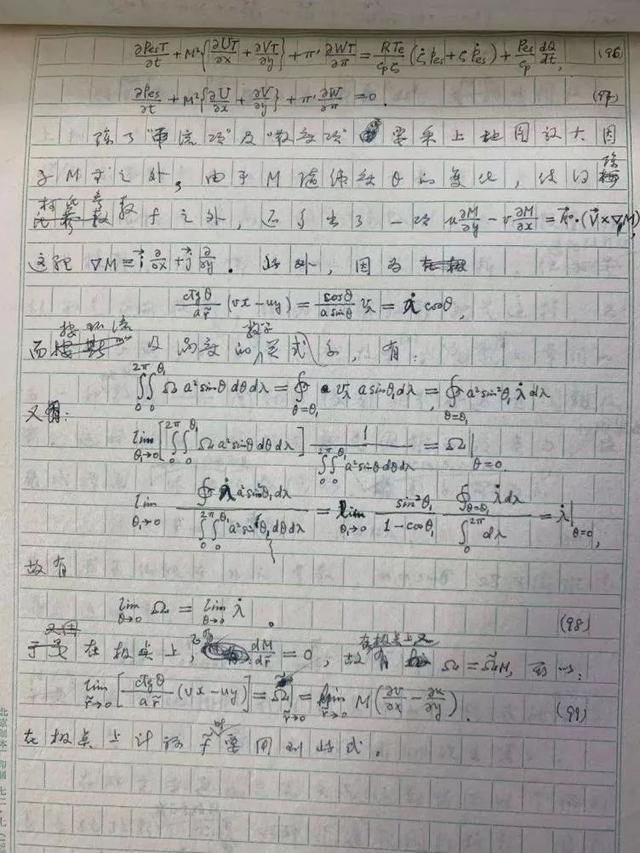 ∂PesT/∂t + M²{∂UT/∂x + ∂VT/∂y} + π·∂WT/∂π = RTe/(cpζ)(ζ̇Pes + ζṖes) + Pes/cp dQ/dt, (96)
∂Pes/∂t + M²{∂U/∂x + ∂V/∂y} + π·∂W/∂π = 0. (97)
除了"平流项"及"散度项" 要乘上地图放大因
子M 之外, 由于M随纬级θ的变化, 使得
参数f之外, 还多出了一项 u∂M/∂y − v∂M/∂x = k⃗·(V⃗×∇M),
这里 ∇M ≡ i⃗ ∂/∂x + j⃗ ∂/∂y. 此外, 因为
ctgθ/(ar̃)(vx−uy) = cosθ/(a sinθ) vλ = λ̇ cosθ,
而按环流 及涡度的 关式, 有:
∫₀^{2π}∫₀^{θ₁} Ω a² sinθ dθdλ = ∮_{θ=θ₁} vλ a sinθ₁dλ = ∮_{θ=θ₁} a² sin²θ₁ λ̇ dλ
又有:
lim_{θ₁→0} [∫₀^{2π}∫₀^{θ₁} Ω a² sinθ dθdλ] 1/(∫₀^{2π}∫₀^{θ₁} a² sinθ dθdλ) = Ω|_{θ=0}.
lim_{θ₁→0} ∮ λ̇ a² sin²θ₁dλ/(∫₀^{2π}∫₀^{θ₁} a² sinθ dθdλ) = lim_{θ₁→0} sin²θ₁/(1−cosθ₁) ∮_{θ=θ₁} λ̇dλ/∫₀^{2π}dλ = λ̇|_{θ=0},
故有
lim_{θ→0} Ω = lim_{θ→0} λ̇. (98)
于是在极点上, dM/dr̃ = 0, 在极点上又有 Ω = Ω̃M,
lim_{r̃→0} [ctgθ/(ar̃)(vx−uy)] = Ω̃|_{r̃→0} = lim_{r̃→0} M(∂v/∂x − ∂u/∂y). (99)
在极点上计算f̃时要用到此式.